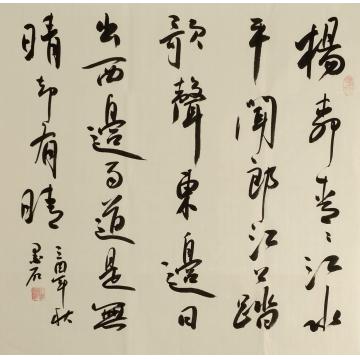 楊柳青〻江水
平聞郎江上踏
歌聲東邊日
出西邊雨道是無
晴却有晴
酉年秋
墨石